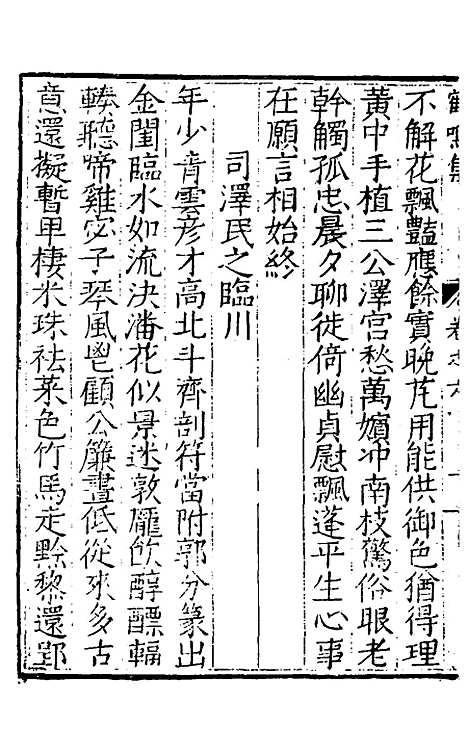 鶴鳴集 卷之六
不解花飄豔應餘實晚芘用能供御色猶得理
黃中手植三公澤宮愁萬嬪冲南枝驚俗眼老
幹觸孤忠晨夕聊徒倚幽貞慰飄蓬平生心事
在願言相始終
司澤民之臨川
年少青雲彥才高北斗齊剖符當附郭分篆出
金閨臨水如流決潘花似景迷敦龎飮醇醥輻
輳聽啼雞宓子琴風鬯顧公簾晝低從來多古
意還擬暫甲棲米珠祛菜色竹馬走黔黎還郢